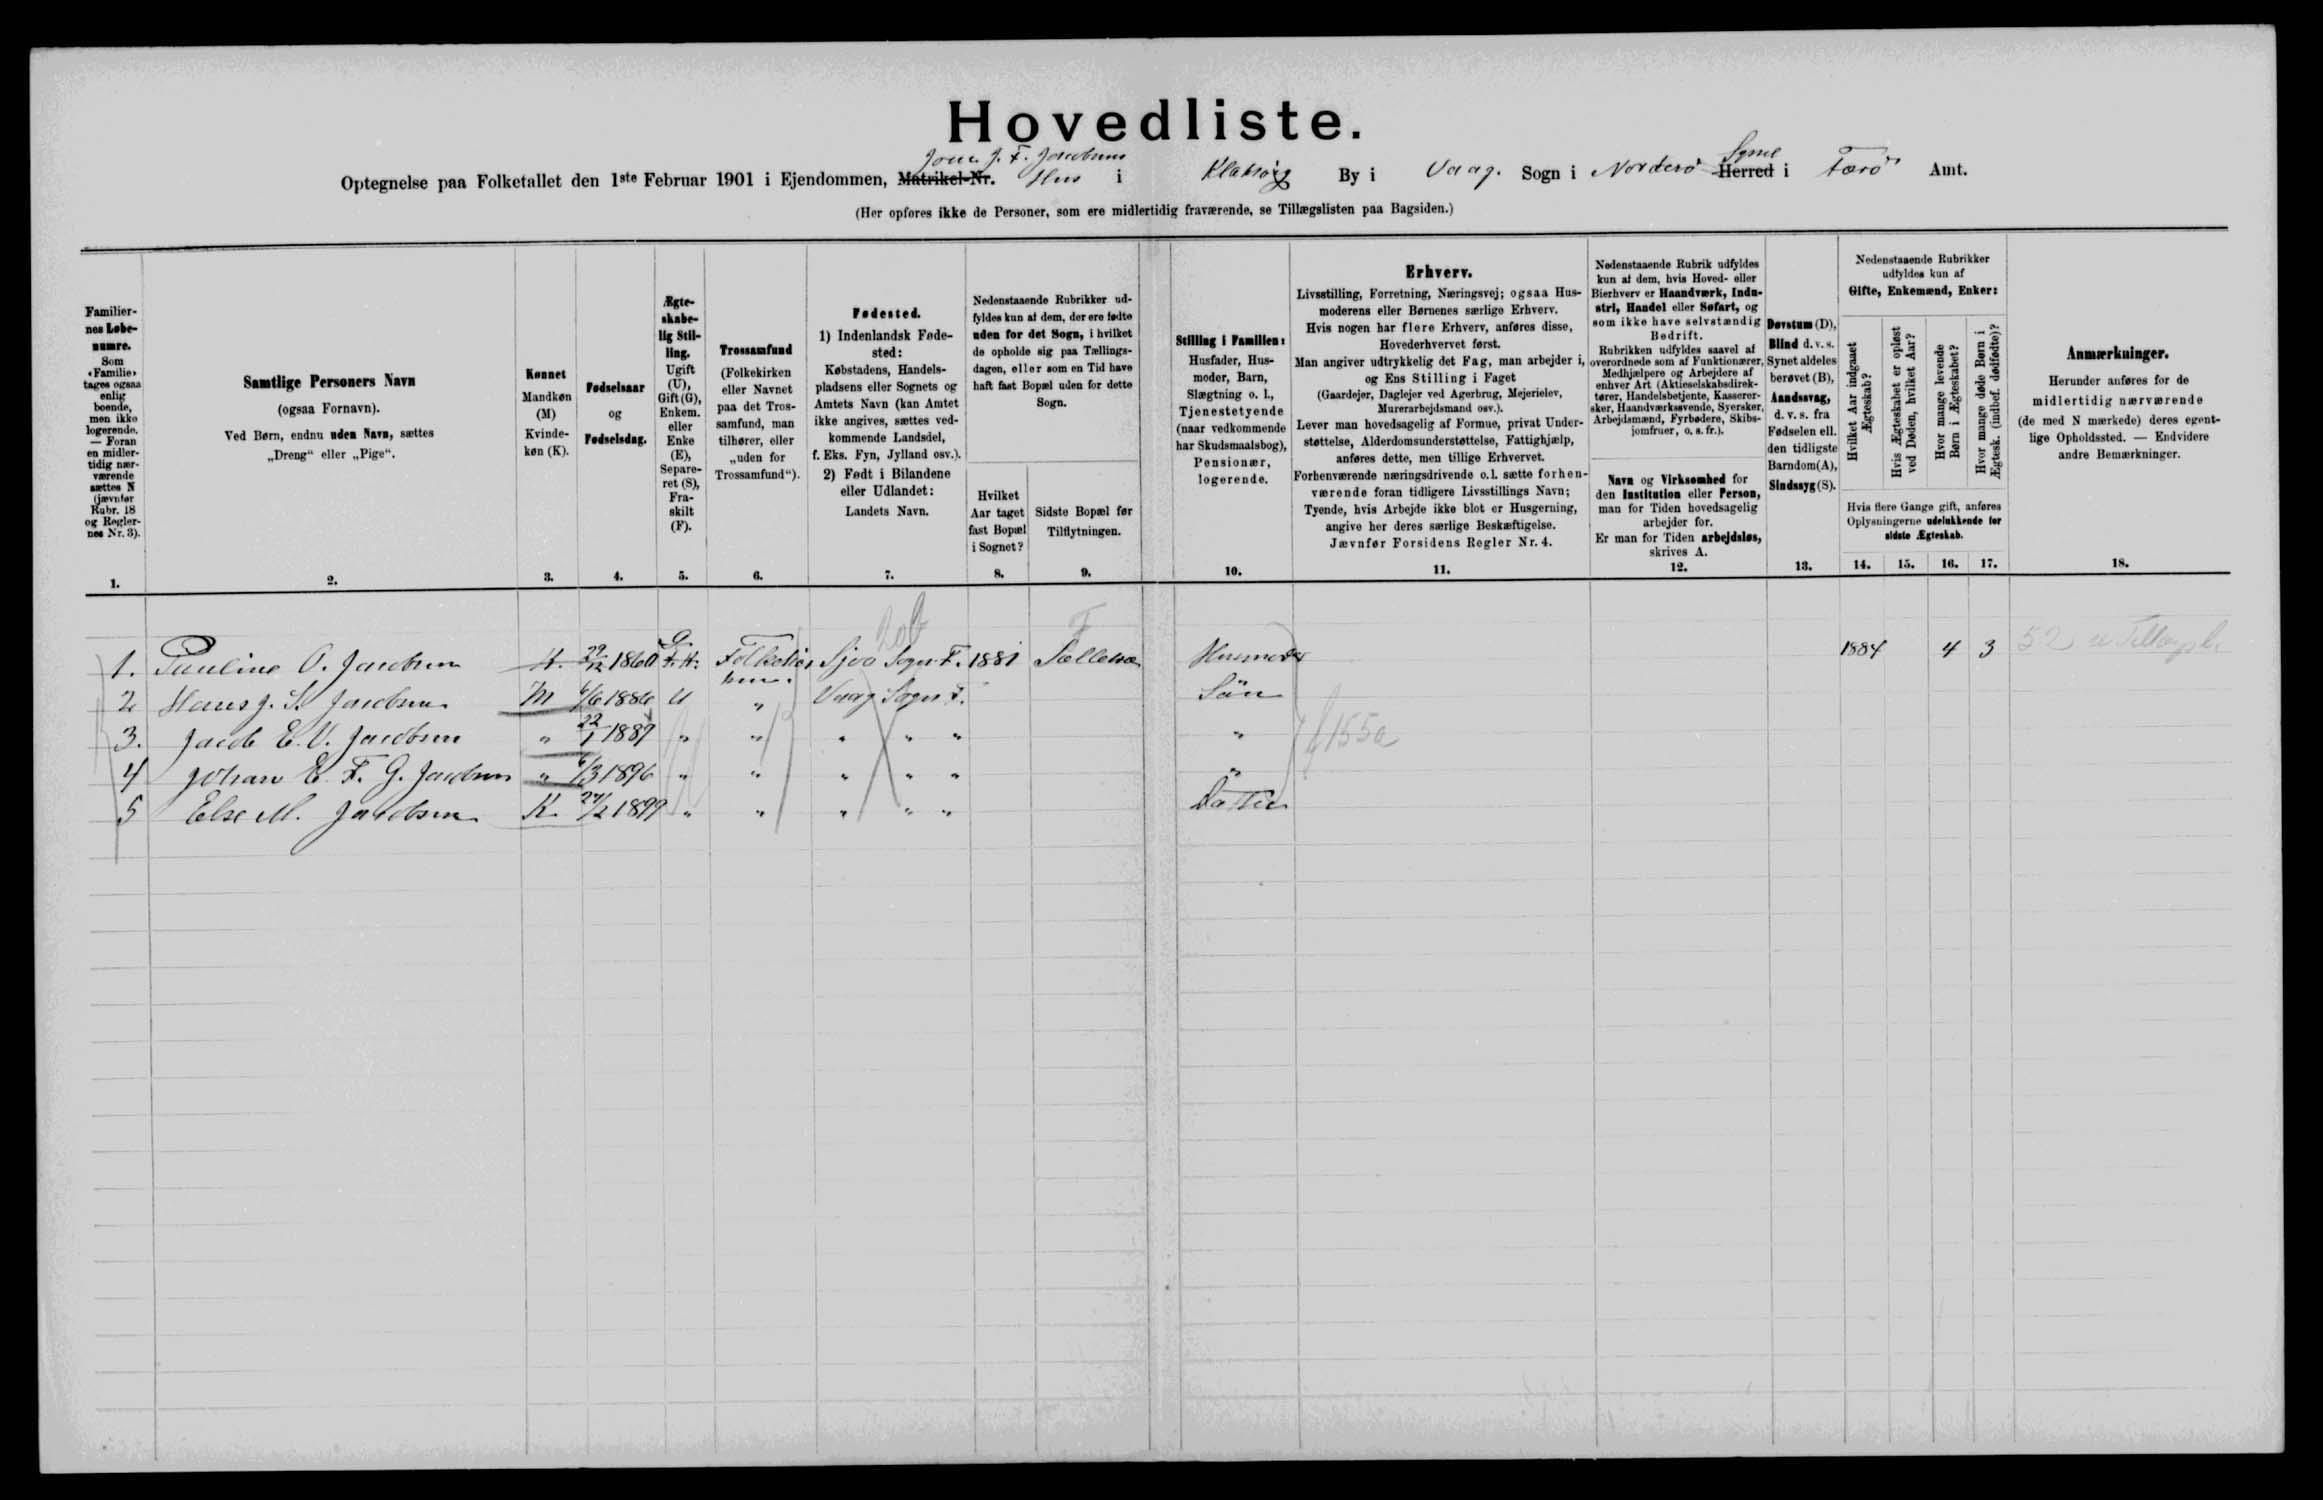 Hovedliste.
Joen J. F. Jacobsens
Optegnelse paa Folketallet den 1ste Februar 1901 i Ejendommen, Matrikel-Nr. Hus i Klaksvig By i Vaag. Sogn i Norderø Syssel Herred i Færø Amt.
(Her opføres ikke de Personer, som ere midlertidig fraværende, se Tillægslisten paa Bagsiden.)
Familiernes Løbenumre.
Som «Familie» tages ogsaa enlig boende, men ikke logerende. — Foran en midlertidig nærværende sættes N (jævnfør Rubr. 18 og Reglernes Nr. 3).
1.
Samtlige Personers Navn
(ogsaa Fornavn).
Ved Børn, endnu uden Navn, sættes
„Dreng“ eller „Pige“.
2.
Kønnet
Mandkøn (M)
Kvindekøn (K).
3.
Fødselsaar
og
Fødselsdag.
4.
Ægteskabelig Stilling.
Ugift (U), Gift (G), Enkem. eller Enke (E), Separeret (S), Fraskilt (F).
5.
Trossamfund
(Folkekirken eller Navnet paa det Trossamfund, man tilhører, eller „uden for Trossamfund“).
6.
Fødested.
1) Indenlandsk Fødested:
Købstadens, Handelspladsens eller Sognets og Amtets Navn (kan Amtet ikke angives, sættes vedkommende Landsdel, f. Eks. Fyn, Jylland osv.).
2) Født i Bilandene eller Udlandet:
Landets Navn.
7.
Nedenstaaende Rubrikker udfyldes kun af dem, der ere fødte uden for det Sogn, i hvilket de opholde sig paa Tællingsdagen, eller som en Tid have haft fast Bopæl uden for dette Sogn.
Hvilket Aar taget fast Bopæl i Sognet?
8.
Sidste Bopæl før Tilflytningen.
9.
Stilling i Familien:
Husfader, Husmoder, Barn, Slægtning o. l., Tjenestetyende (naar vedkommende har Skudsmaalsbog), Pensionær, logerende.
10.
Erhverv.
Livsstilling, Forretning, Næringsvej; ogsaa Husmoderens eller Børnenes særlige Erhverv.
Hvis nogen har flere Erhverv, anføres disse, Hovederhvervet først.
Man angiver udtrykkelig det Fag, man arbejder i, og Ens Stilling i Faget
(Gaardejer, Daglejer ved Agerbrug, Mejerielev, Murerarbejdsmand osv.).
Lever man hovedsagelig af Formue, privat Understøttelse, Alderdomsunderstøttelse, Fattighjælp, anføres dette, men tillige Erhvervet.
Forhenværende næringsdrivende o. l. sætte forhenværende foran tidligere Livsstillings Navn;
Tyende, hvis Arbejde ikke blot er Husgerning, angive her deres særlige Beskæftigelse.
Jævnfør Forsidens Regler Nr. 4.
11.
Nedenstaaende Rubrik udfyldes kun af dem, hvis Hoved- eller Bierhverv er Haandværk, Industri, Handel eller Søfart, og som ikke have selvstændig Bedrift.
Rubrikken udfyldes saavel af overordnede som af Funktionærer, Medhjælpere og Arbejdere af enhver Art (Aktieselskabsdirektører, Handelsbetjente, Kasserersker, Haandværkssvende, Syersker, Arbejdsmænd, Fyrbødere, Skibsjomfruer, o. s. fr.).
Navn og Virksomhed for den Institution eller Person, man for Tiden hovedsagelig arbejder for.
Er man for Tiden arbejdsløs, skrives A.
12.
Døvstum (D), Blind d. v. s. Synet aldeles berøvet (B), Aandssvag, d. v. s. fra Fødselen ell. den tidligste Barndom (A), Sindssyg (S).
13.
Nedenstaaende Rubrikker udfyldes kun af
Gifte, Enkemænd, Enker:
Hvilket Aar indgaaet Ægteskab?
Hvis Ægteskabet er opløst ved Døden, hvilket Aar?
Hvor mange levende Børn i Ægteskabet?
Hvor mange døde Børn i Ægtesk. (indbef. dødfødte)?
Hvis flere Gange gift, anføres Oplysningerne udelukkende for sidste Ægteskab.
14. 15. 16. 17.
Anmærkninger.
Herunder anføres for de midlertidig nærværende (de med N mærkede) deres egentlige Opholdssted. — Endvidere andre Bemærkninger.
18.
1. Pauline O. Jacobsen K. 29/12 1860 G Folkekirken. Sjov Sogn F. 1881 Husmoder 1884 4 3 52 se Tillægsl.
2 Hans J. S. Jacobsen M 6/6 1886 U „ Vaag Sogn F. Sön
3. Jacob E. V. Jacobsen „ 22/1 1889 „ „ „ „ „ „
4 Johan E. F. G. Jacobsen „ 6/3 1896 „ „ „ „ „ „
5 Else M. Jacobsen K. 24/2 1899 „ „ „ „ „ Datter
f 155a